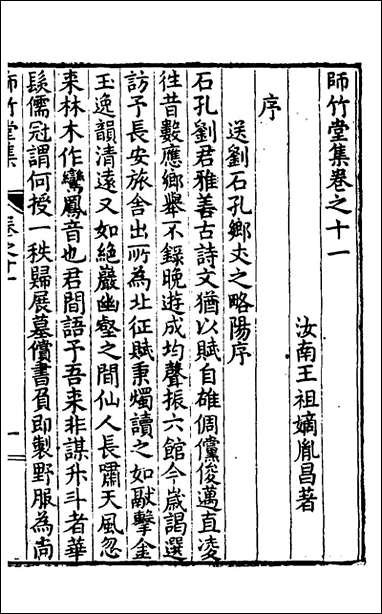 師竹堂集卷之十一
汝南王祖嫡胤昌著
序
送劉石孔鄉丈之略陽序
石孔劉君雅善古詩文猶以賦自雄倜儻俊邁直凌
徃昔數應鄉舉不錄晚遊成均聲振六館今歲謁選
訪予長安旅舍出所為北征賦秉燭讀之如敲擊金
玉逸韻清遠又如絶巖幽壑之間仙人長嘯天風忽
来林木作鸞鳳音也君間語予吾来非謀升斗者華
髮儒冠謂何授一秩歸展墓償書負即製野服為尚
師竹堂集
卷之十一
一